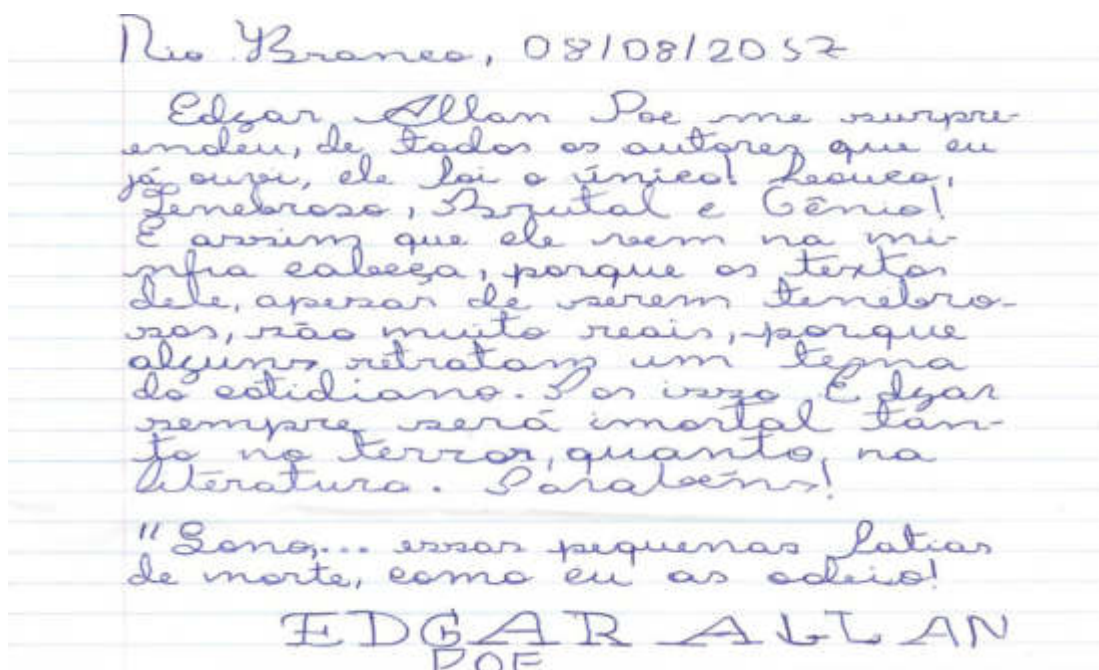 Rio Branco, 08/08/2017
Edgar Allan Poe me surpre-
endeu, de todos os autores que eu
já ouvi, ele foi o único! Louco,
Tenebroso, Brutal e Gênio!
É assim que ele vem na mi-
nha cabeça, porque os textos
dele, apesar de serem tenebro-
sos, são muito reais, porque
alguns retratam um tema
do cotidiano. Por isso Edgar
sempre será imortal tan-
to no terror, quanto, na
literatura. Parabéns!
"Sono,... essas pequenas fatias
de morte, como eu as odeio!
EDGAR ALLAN
POE